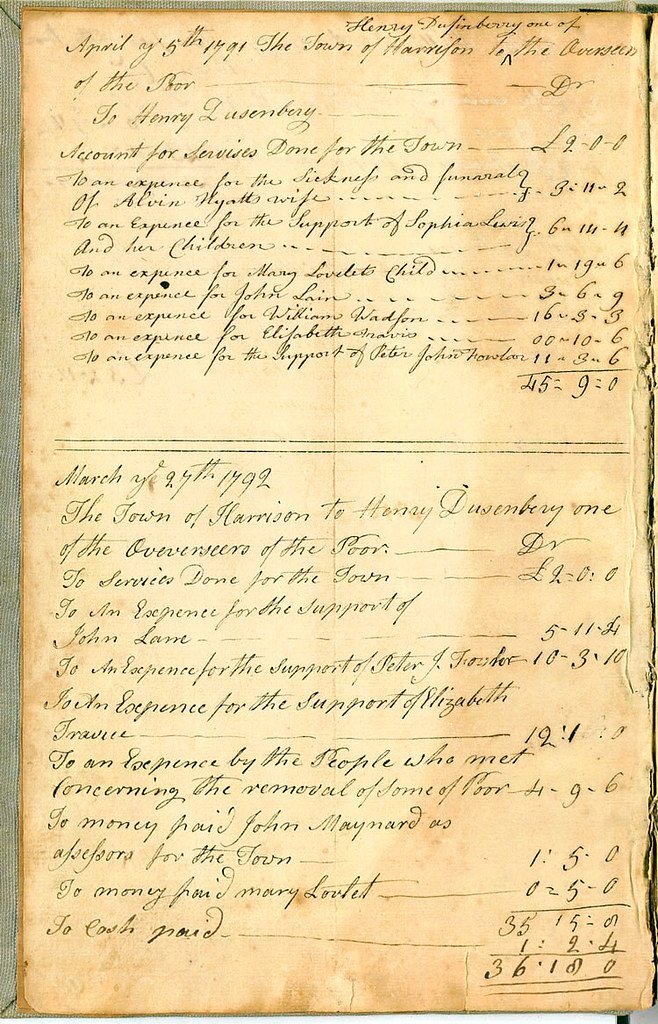 Henry Dusinberry one of
April ye 5th 1791 The Town of Harrison to ^ the Overseers
of the Poor — Dr
To Henry Dusenbery
Account for Servises Done for the Town — £2-0-0
To an expence for the Sickness and funaral
Of Alvin Hyatts wife - 3-11-2
To an Expence for the Support of Sophia Lewis
And her Children 6-14-4
To an expence for Mary Lovelet Child 1-19-6
To an expence for John Lain 3-6-9
To an expence for William Wadson 16-3-3
To an expence for Elisabeth Travis 00-10-6
To an expence for the Support of Peter John Fowlar 11-3-6
45=9=0
March ye 27th 1792
The Town of Harrison to Henry Dusenbery one
of the Oververseers of the Poor — Dr
To Services Done for the Town — £2=0:0
To An Expence for the support of
John Lane — 5-11-4
To An Expence for the Support of Peter J. Fowlor 10-3-10
To An Expence for the Support of Elizabeth
Travice — 12:1 :0
To an Expence by the People who met
Concerning the removal of Some of Poor 4-9-6
To money paid John Maynard as
assessors for the Town — 1:5-0
To money paid mary Lovlet — 0=5-0
35 15=8
To Cash paid — 1:2:4
36:18 0